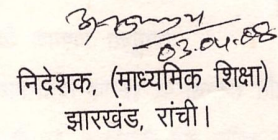 03.04.08
निदेशक, (माध्यमिक शिक्षा)
झारखंड, रांची।